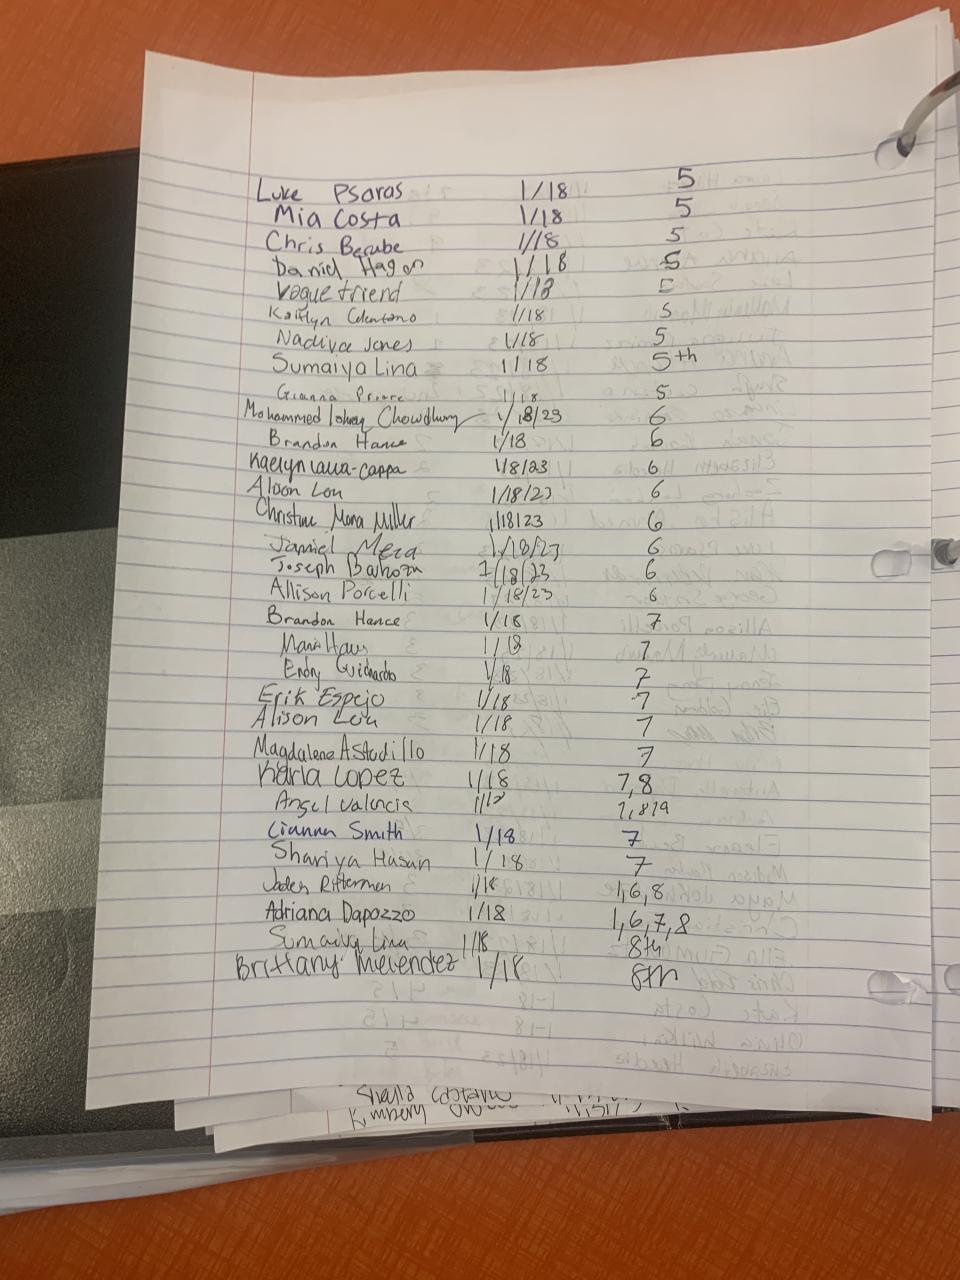 Luke Psaras 1/18 5
Mia Costa 1/18 5
Chris Berube 1/18 5
Daniel Hagon 1/18 5
Vogue friend 1/18 5
Kaitlyn 1/18 5
Nadiya Jones 1/18 5
Sumaiya Lina 1/18 5th
Gianna 1/18 5
Mohammed Chowdhury 1/18/23 6
Brandon Hance 1/18 6
Kaelyn 1/8/23 6
1/18/23 6
Christine Mona Miller 1/18/23 6
Jamiel Mera 1/18/23 6
Joseph 1/18/23 6
Allison Porcelli 1/18/23 6
Brandon Hance 1/18 7
1/18 7
1/18 7
Erik Espejo 1/18 7
Alison 1/18 7
Magdalena Astudillo 1/18 7
Karla Lopez 1/18 7,8
Angel Valencia 1/18
Cianna Smith 1/18 7
Shariya Hasan 1/18 7
Jaden Ritterman 1/18 1,6,8
Adriana Dapozzo 1/18 1,6,7,8
Sumaiya Lina 1/18 8th
Brittany Melendez 1/18 8th